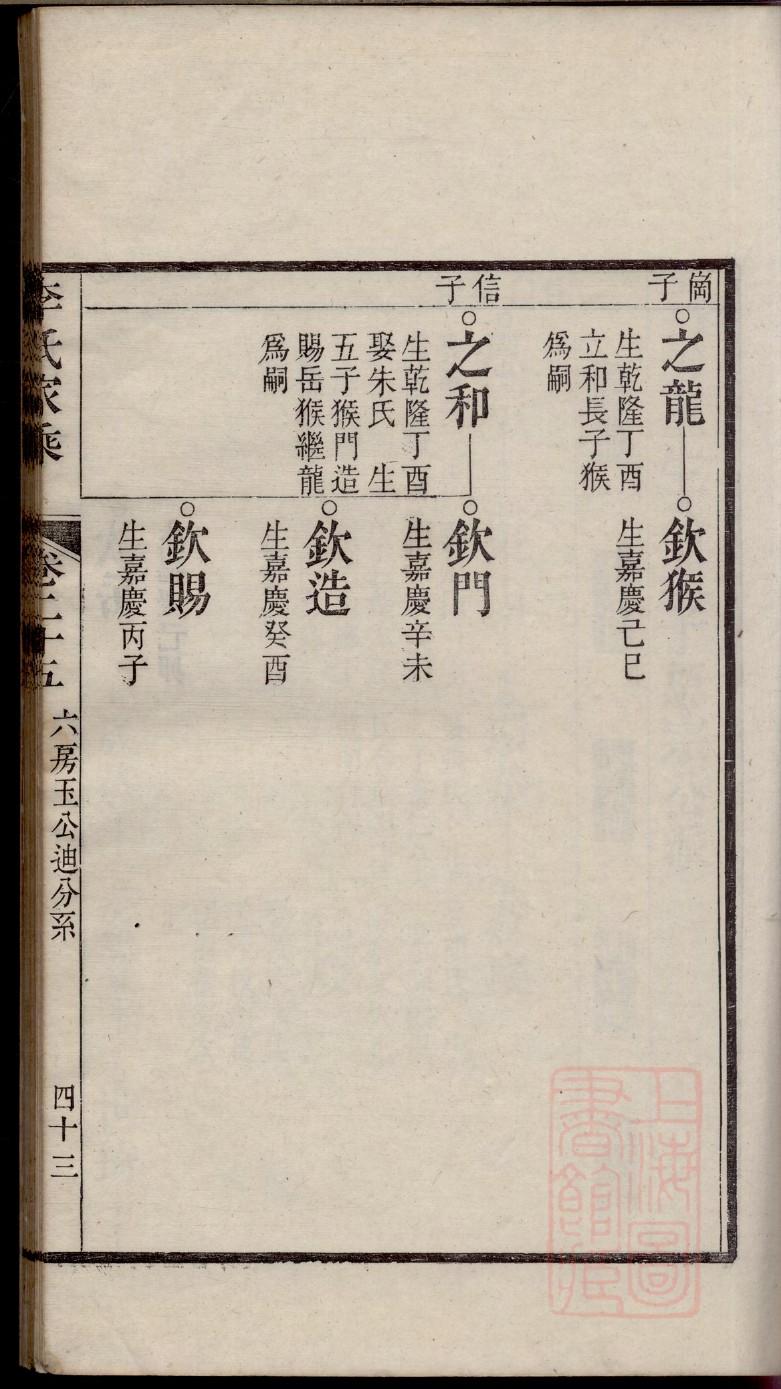 崗子
之龍
生乾隆丁酉
立和長子猴
爲嗣
欽猴
生嘉慶己巳
信子
之和
生乾隆丁酉
娶朱氏 生
五子猴門造
賜岳猴繼龍
爲嗣
欽門
生嘉慶辛未
欽造
生嘉慶癸酉
欽賜
生嘉慶丙子
李氏家乘
卷二十五
六房玉公迪分系
四十三
上海圖
書館藏